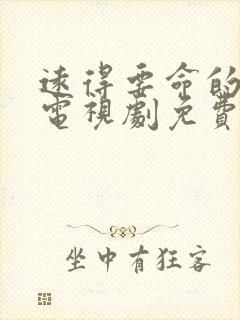 遠得要命的
電視劇免費
坐中有狂客